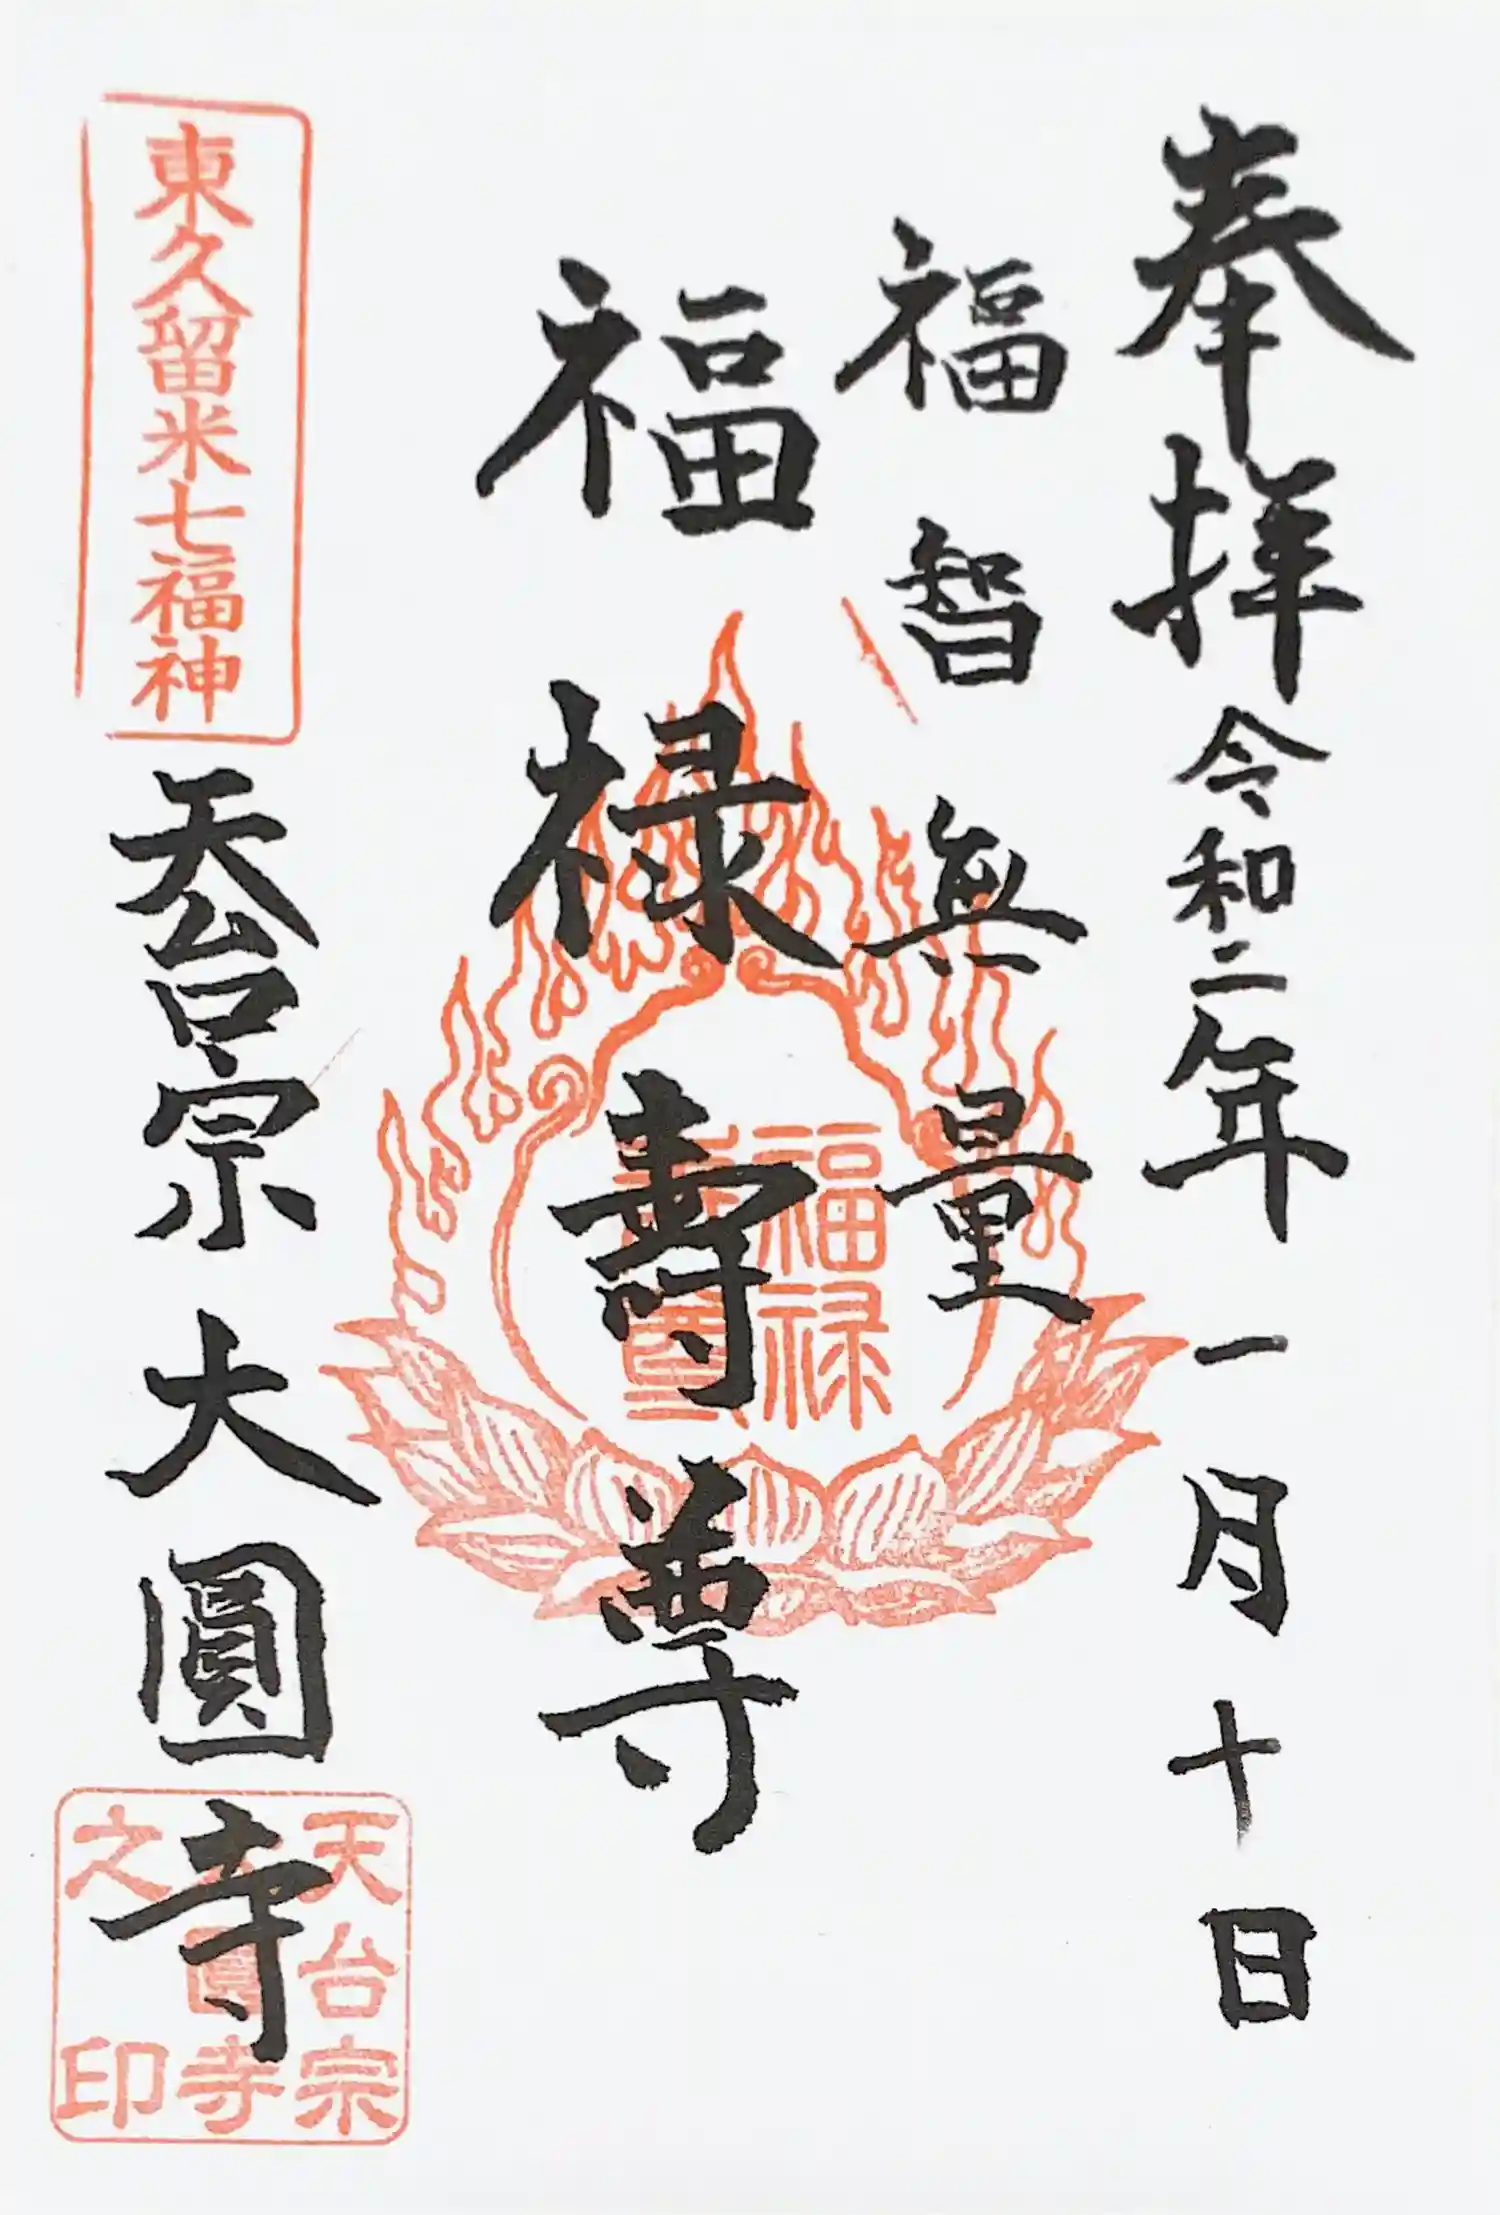 奉拝 令和二年一月十日
福智無量
福禄壽尊
福禄
東久留米七福神
天台宗大圓寺
天台宗
圓寺
之印